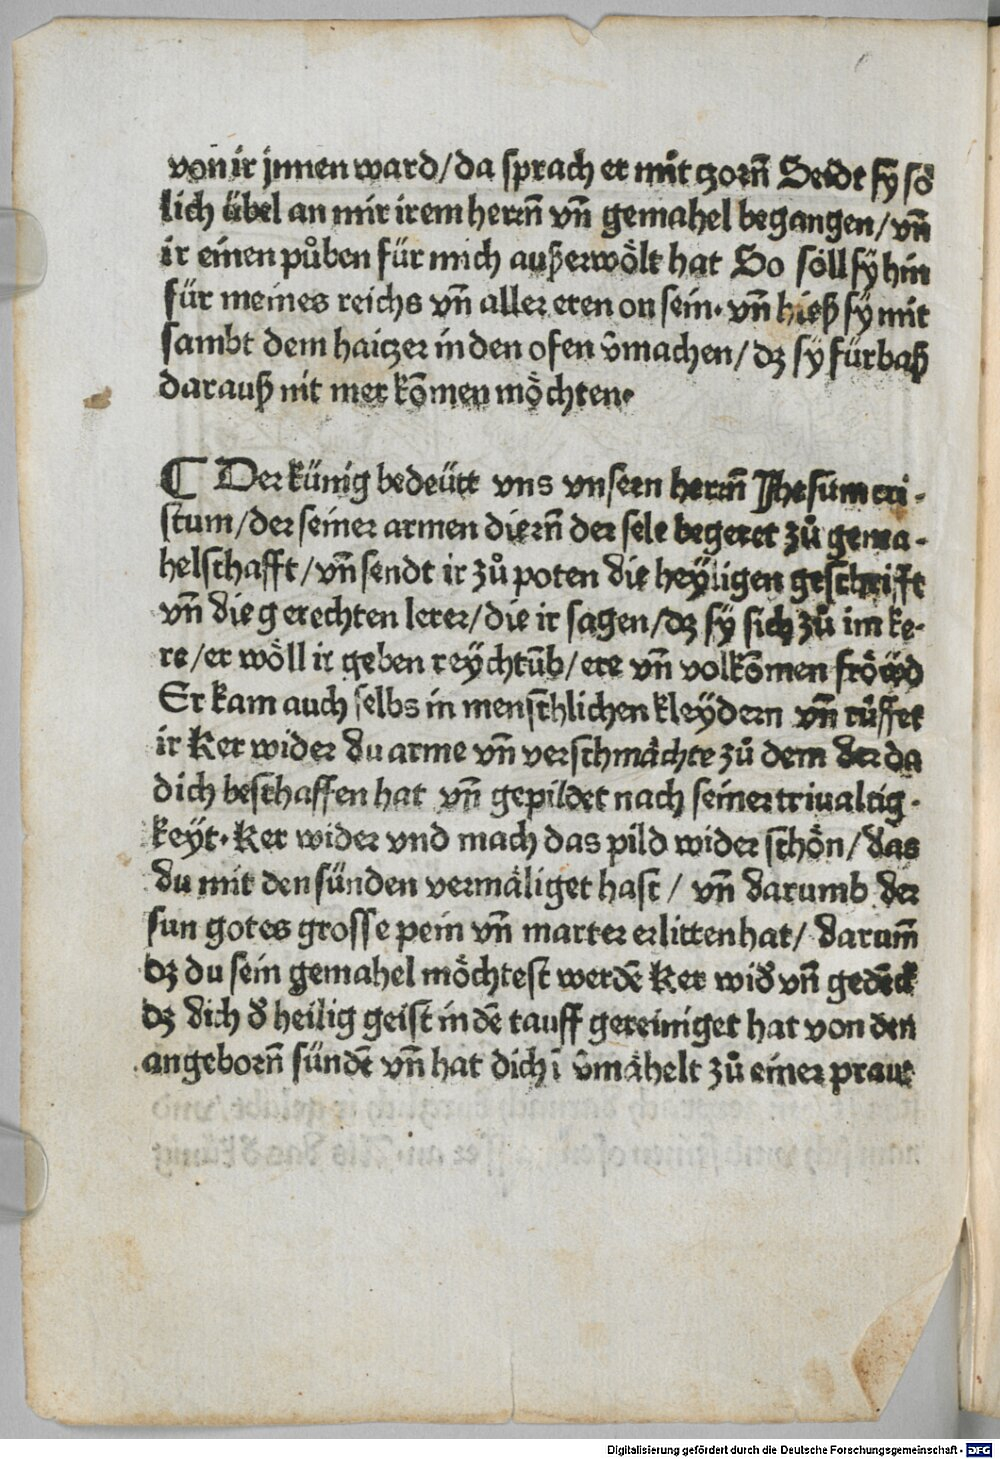 von ir jnnen ward/da sprach er mit zorñ Seidt sy sö
lich übel an mir irem herrñ vñ gemahel begangen/vñ
ir einen půben für mich außerwölt hat So söll sÿ hin
für meines reichs vñ aller eren on sein. vñ hieß sÿ mit
sambt dem haitzer in den ofen v̄machen/dz sÿ fürbaß
darauß nit mer kōmen möchten.
¶ Der künig bedeütt vns vnsern herrñ Jhesum cri-
stum/der seiner armen dierñ der sele begeret zů gema-
helschafft/vñ sendt ir zů poten die heÿligen geschrifft
vñ die gerechten lerer/die ir sagen/dz sÿ sich zů im ke-
re/er wöll ir geben reÿchtūb/ere vñ volkōmen fröwd
Er kam auch selbs in menschlichen kleÿdern vñ růffet
ir Ker wider du arme vñ verschmächte zů dem der da
dich beschaffen hat vñ gepildet nach seiner triualtig-
keÿt. Ker wider vnd mach das pild wider schön/das
du mit den sünden vermäliget hast/ vñ darumb der
sun gotes grosse pein vñ marter erlitten hat/ darum̄
dz du sein gemahel möchtest werdē Ker wid̄ vñ gedēck
dz dich d̄ heilig geist in dē tauff gereiniget hat von den
angeborñ sündē vñ hat dich ī v̄mähelt zů einer praut
Digitalisierung gefördert durch die Deutsche Forschungsgemeinschaft - DFG